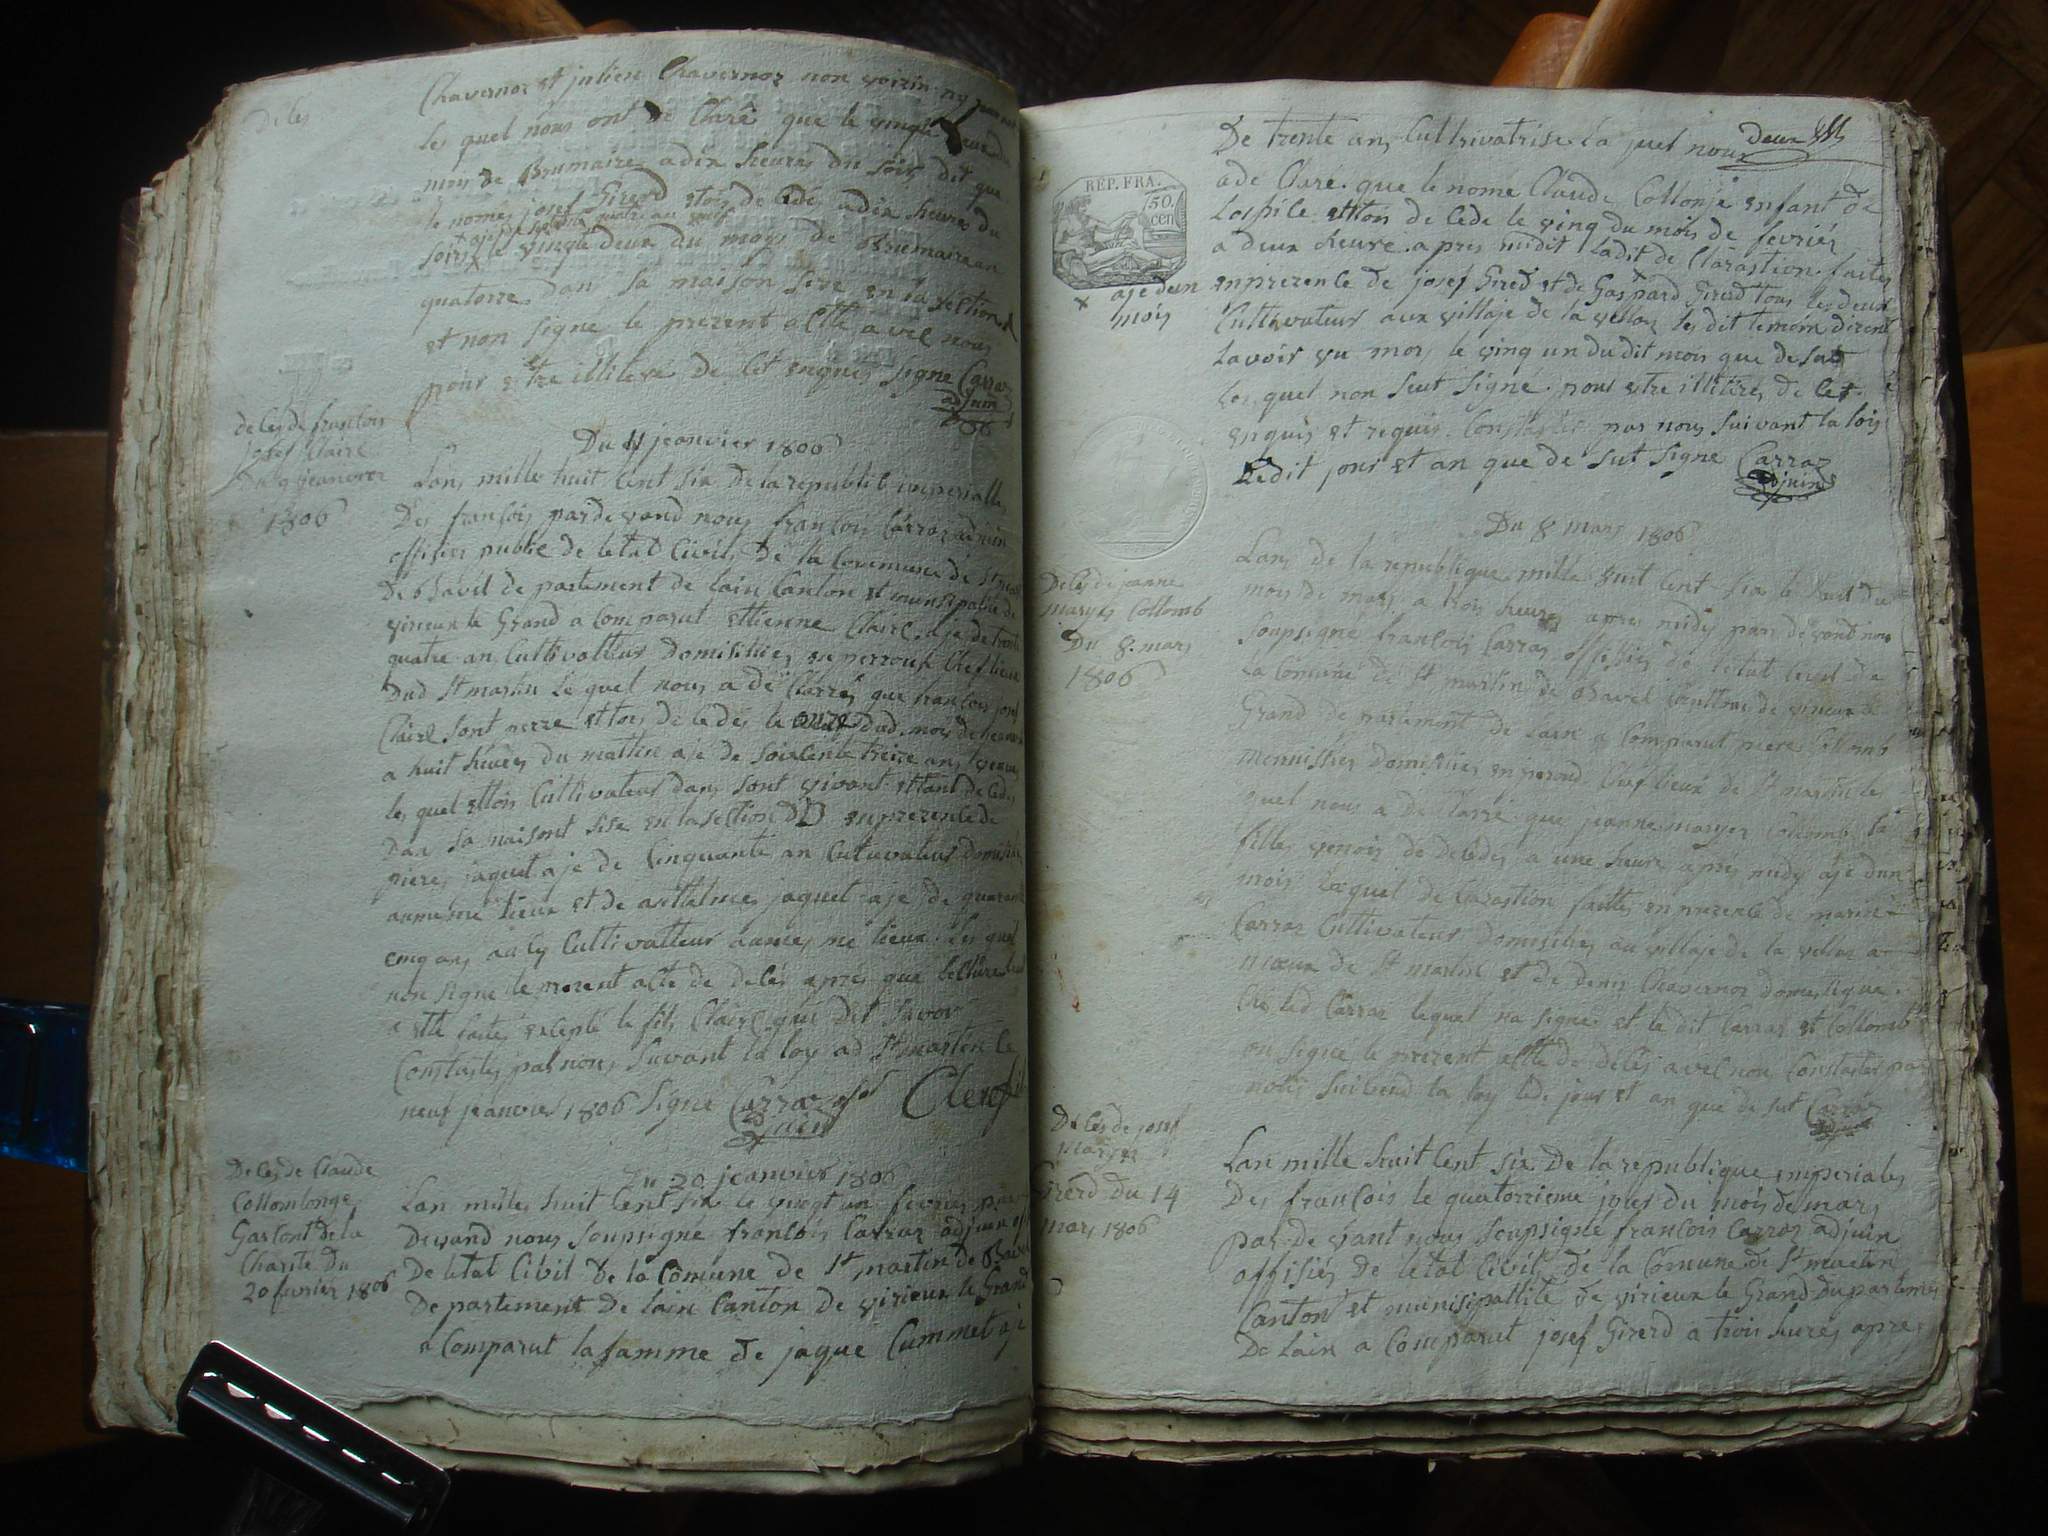 Deles
Chavernoz et julien Chavernoz non voizin ny
les quel nous ont de Claré que le vingt deux du
mois de Brumaire adix heures du soir dit que
le nomé josef Girerd etois de Cedé adix heure du
soir le vingt deux du mois de Brumaire an
quatorze dan sa maison size en la section
et non signe le prezent actte avec nous
pour etre illiteré de Cet enquis signe Carraz
adjuin
deles de francois
josef Claire
du 9 jeanvier
1806
Du 11 jeanvier 1806
Lan mille huit Cent six de la republic imperialle
Des francois pardevand nous francois Carraz adjuin
offisier public de letat Civil De la Commune de St martin
De Bavel de partement de lain Canton et munisipalité de
virieux le Grand a Comparut ettienne Claire aje de trente
quatre an Cultivatteur domisiliés en perrout Chef lieux
Dud St martin le quel nous a de Clarrés que francois josef
Claire sont perre ettois de Cedés le onze dud mois de jeanvier
a huit heures du mattin aje de soixcente treize ans
les quel ettois Cultivateur dans sont vivant ettant de Cedes
Dan sa maisont sise en la section dD enprezence de
pierre jaquet aje de Cinquante an Cultivateur domisilié
aumeme lieux et de antthelmes jaquet aje de quarante
cinq ans aussy Cultivatteur aumeme lieux les quel
non signe le prezent alte de delés apres que lecture
a etté faite exepté le fils Claire qui dit savoir
Constastés par nous suivant la loy ad St martin le
neuf jeanvier 1806 signe Carraz off Clerc fils
adjuin
Deles de Claude
Collomlonge
Garsont de la
Charite Du
20 fevrier 1806
Du 20 jeanvier 1806
Lan mille huit Cent six le vingt un fevrier par
Devand nous soupsigné francois Carraz adjuin off
De letat Cibil de la Comune de St martin de Bavel
De partement De lain Canton de virieux le Grand
a Comparut la famme de jaque Cummet aje
deux
De trente an Cultrivatrise la quel nous
a de Claré que le nomé Claude Collonje enfant de
REP. FRA.
50.
cen
Lospile ettois de Cede le vinq du mois de fevrier
a deux heure apres midit ladit de Clarastion faites
x aje dun
mois
enprezence de josef Gired et de Gaspard Girerd tous les deux
Cultivateur aux villaje de la vellaz les dit temoin dirent
lavoir vu mors le vinq un du dit mois que de sut
les quel non seut signé pour etre illitérés de Cet
enquis et requis Constastés par nous suivant la lois
Ledit jour et an que de sut signe Carraz
adjuin
Du 8 mars 1806
Deles de jeanne
maryes Collomb
Du 8 mars
1806
Lans de la republique mille huit Cent six le huit du
mois de mars a trois heures apres midy par devand nous
soupsigné francois Carraz offisier de letat Civil de
la Comune de St martin de Bavel Canttons de virieux le
Grand de partement de Lain a Comparut piere Collomb
mennisier domisiliés en peroud Chef lieux de St martin les
quel nous a de Clarré que jeanne maryes Collomb sa
filles venois de decédés a une heure apres midy aje dun
mois laquel de Clarastion faittes en prezence de marin
Carraz Cultivateur domisiliés au villaje de la vellaz a
moeux de St martin et de denis Chavernoz domestique
Ché led Carraz lequel na signes et le dit Carraz et Collomb
on signe le prezent altte de delés avec nou Constastés par
nous suivend la loy ledi jour et an que de sut Carraz
adjuin
Deles de josef
maryes
Girerd du 14
mars 1806
Lan mille huit Cent six De la republique imperiales
Des francois le quatorzieme jour du mois de mars
par de vant nous soupsigné francois Carraz adjuin
offisiés De letat Civil de la Comune de St martin
Canton et munisipallité de virieux le Grand Departement
De lain a Comparut josef Girerd a trois heures apres